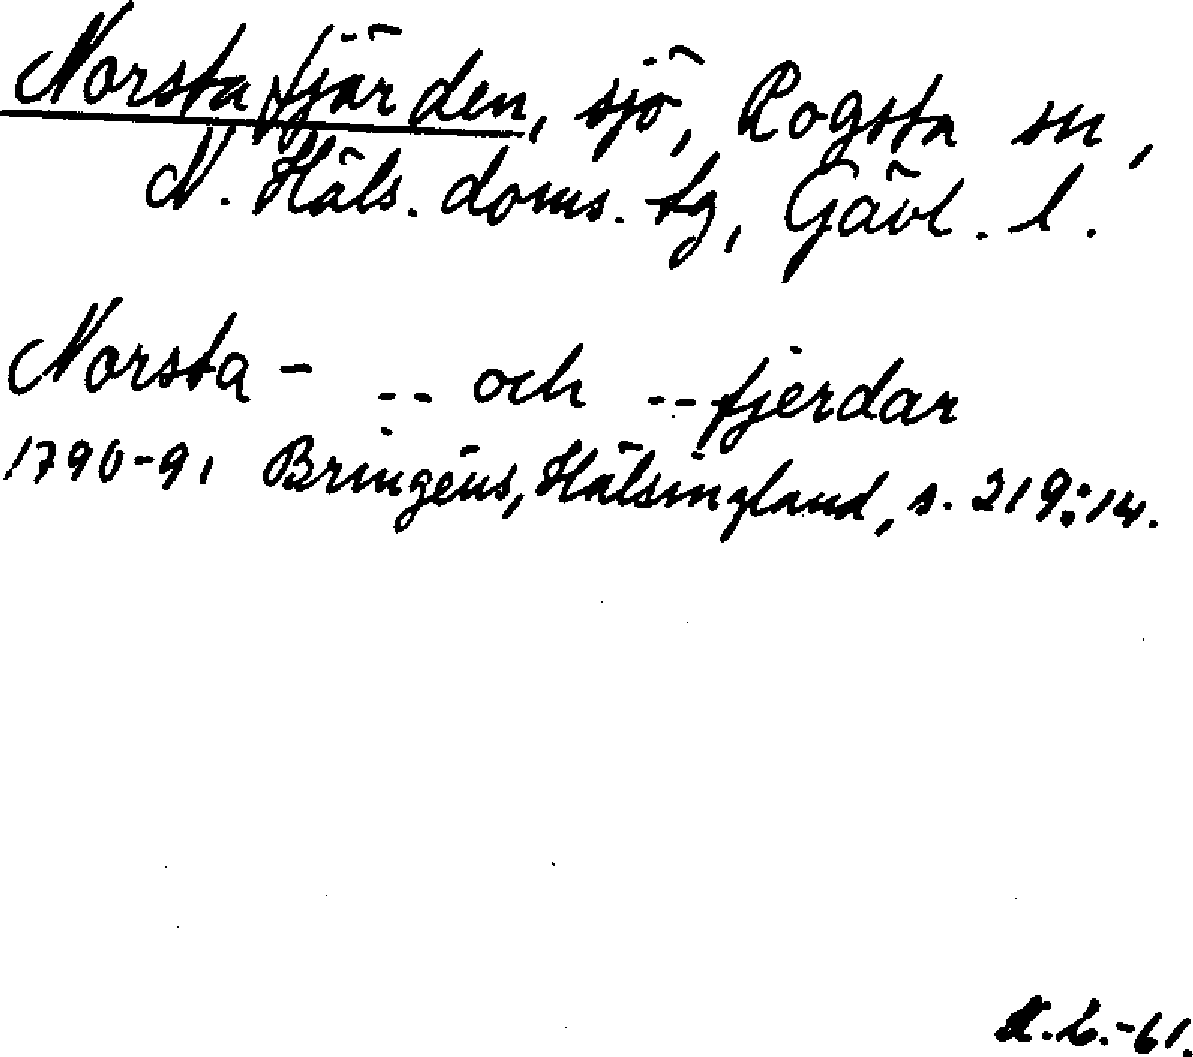 Norstafjärden, sjö, Rogsta sn,
N. Häls. doms. tg, Gävl. l.
Norsta- -- och --fjerdar
1790-91 Bringéus, Hälsingland, s. 219:14.
-61.